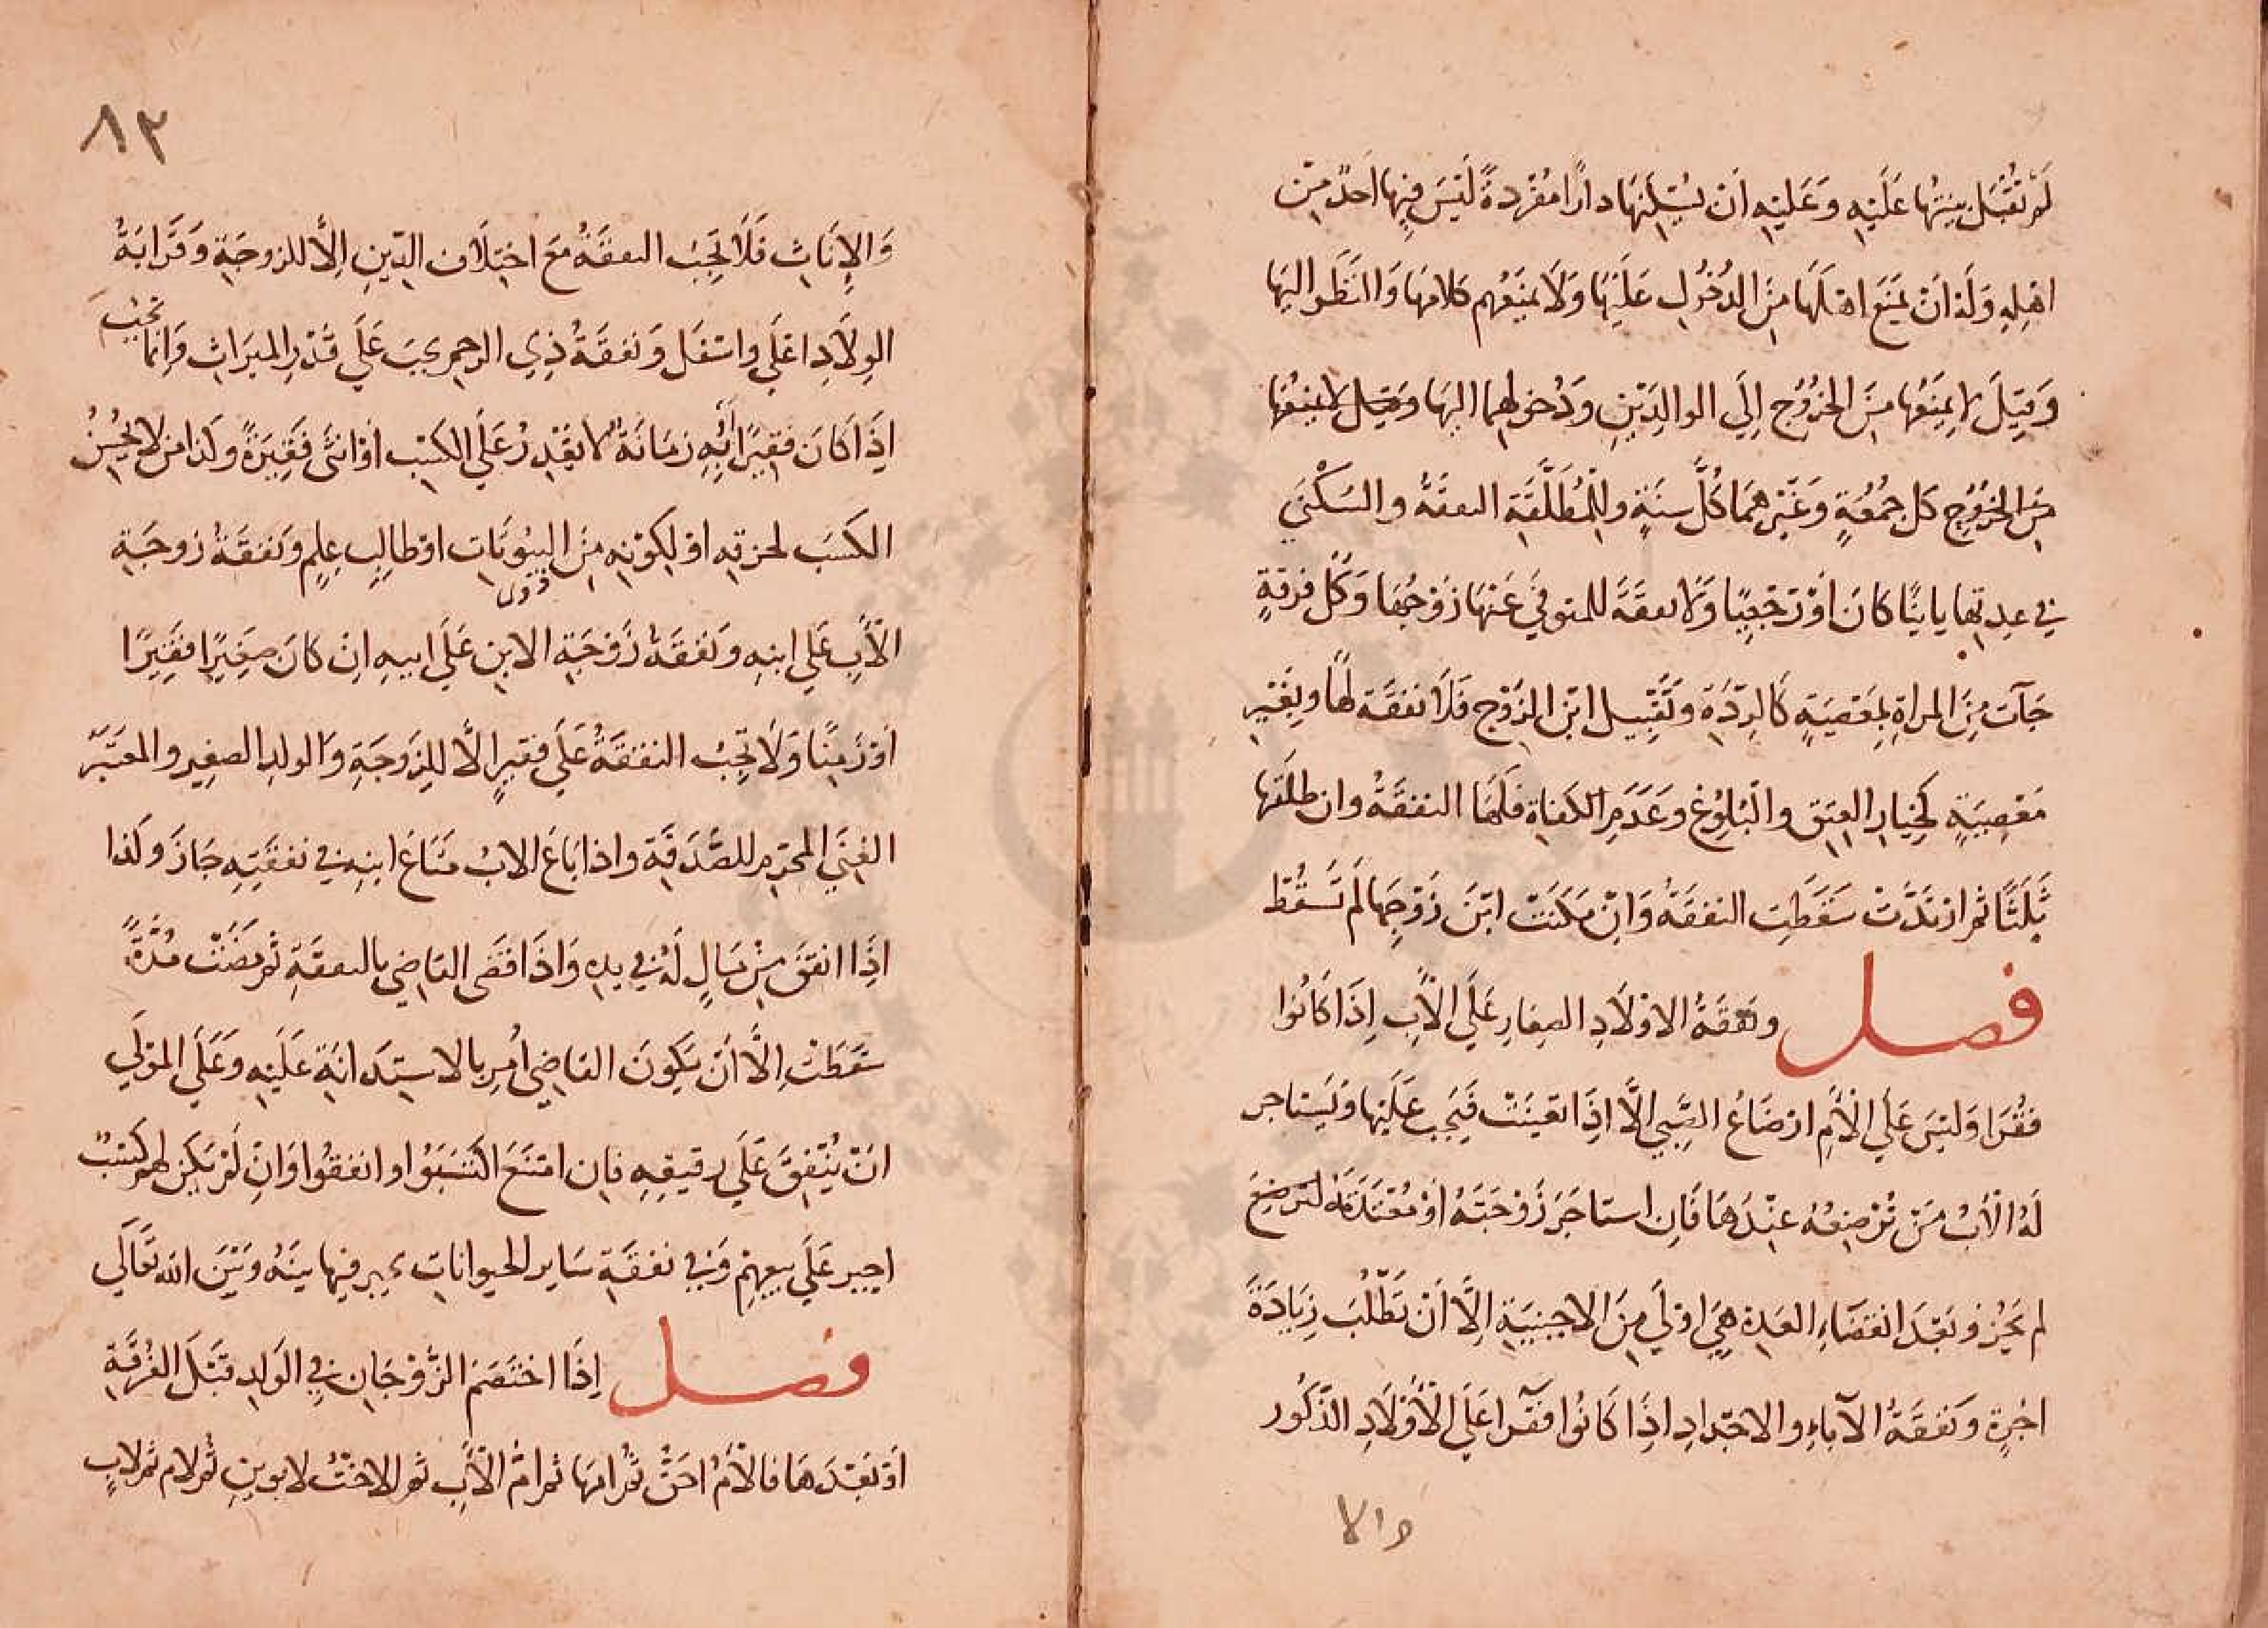 لم تقبل بينتها عليه وعليه ان يسكنها دارا مفردة ليس فيها احد من
اهله وله ان يمنع اهلها من الدخول عليها ولا يمنعهم كلامها والنظر اليها
وقيل لا يمنعها من الخروج الى الوالدين ودخولهما اليها وقيل لا يمنعها
من الخروج كل جمعة وغيرهما كل سنة وللمطلقة النفقة والسكنى
في عدتها باينا كان او رجعيا ولا نفقة للمتوفى عنها زوجها وكل فرقة
جآت من المراة بمعصية كالردة وتقبيل ابن الزوج فلا نفقة لها وبغير
معصية كخيار العتق والبلوغ وعدم الكفاة فلها النفقة وان طلقها
ثلثا ثم ارتدت سقطت النفقة وان مكنت ابن زوجها لم تسقط
فصل ونفقة الاولاد الصغار على الأب إذا كانوا
فقرا وليس على الأم ارضاع الصبي إلا اذا تعينت فيجب عليها ويستاجر
له الأب من ترضعه عندها فان استاجر زوجته او معتدته لترضع
لم يجز وبعد انقضاء العدة هي اولى من الاجنبية إلا ان تطلب زيادة
اجرة ونفقة الآباء والاجداد اذا كانوا فقرا على الأولاد الذكور
والا
٨٢
والإناث فلا تجب النفقة مع اختلاف الدين إلا للزوجة وقرابة
الولاد اعلى واسفل ونفقة ذي الرحم يجب على قدر الميراث وانما تجب
اذا كان فقيرا به زمانة لا يقدر على الكسب او انثى فقيرة وكذا من لا يحسن
الكسب لخرقه او لكونه من البيوتات او طالب علم ونفقة زوجة
ذوى
الأب على ابنه ونفقة زوجة الابن على ابيه ان كان صغيرا فقيرا
او زمنا ولا تجب النفقة على فقير إلا للزوجة والولد الصغير والمعتبر
الغنى المحرم للصدقة واذا باع الاب متاع ابنه في نفقته جاز وكذا
إذا انفق من مال له في يده واذا قضى القاضي بالنفقة ثم مضت مدة
سقطت إلا أن يكون القاضي أمر بالاستدانة عليه وعلى المولى
ان ينفق على رقيقه فان امتنع اكتسبوا وانفقوا وان لم يكن لهم كسب
اجبر على بيعهم وفي نفقة ساير الحيوانات يجبر فيها بينه وبين الله تعالى
فصل إذا اختصم الزوجان في الولد قبل الفرقة
او بعدها فالأم احق ثم امها ثم ام الأب ثم الاخت لابوين ثم لام ثم لاب